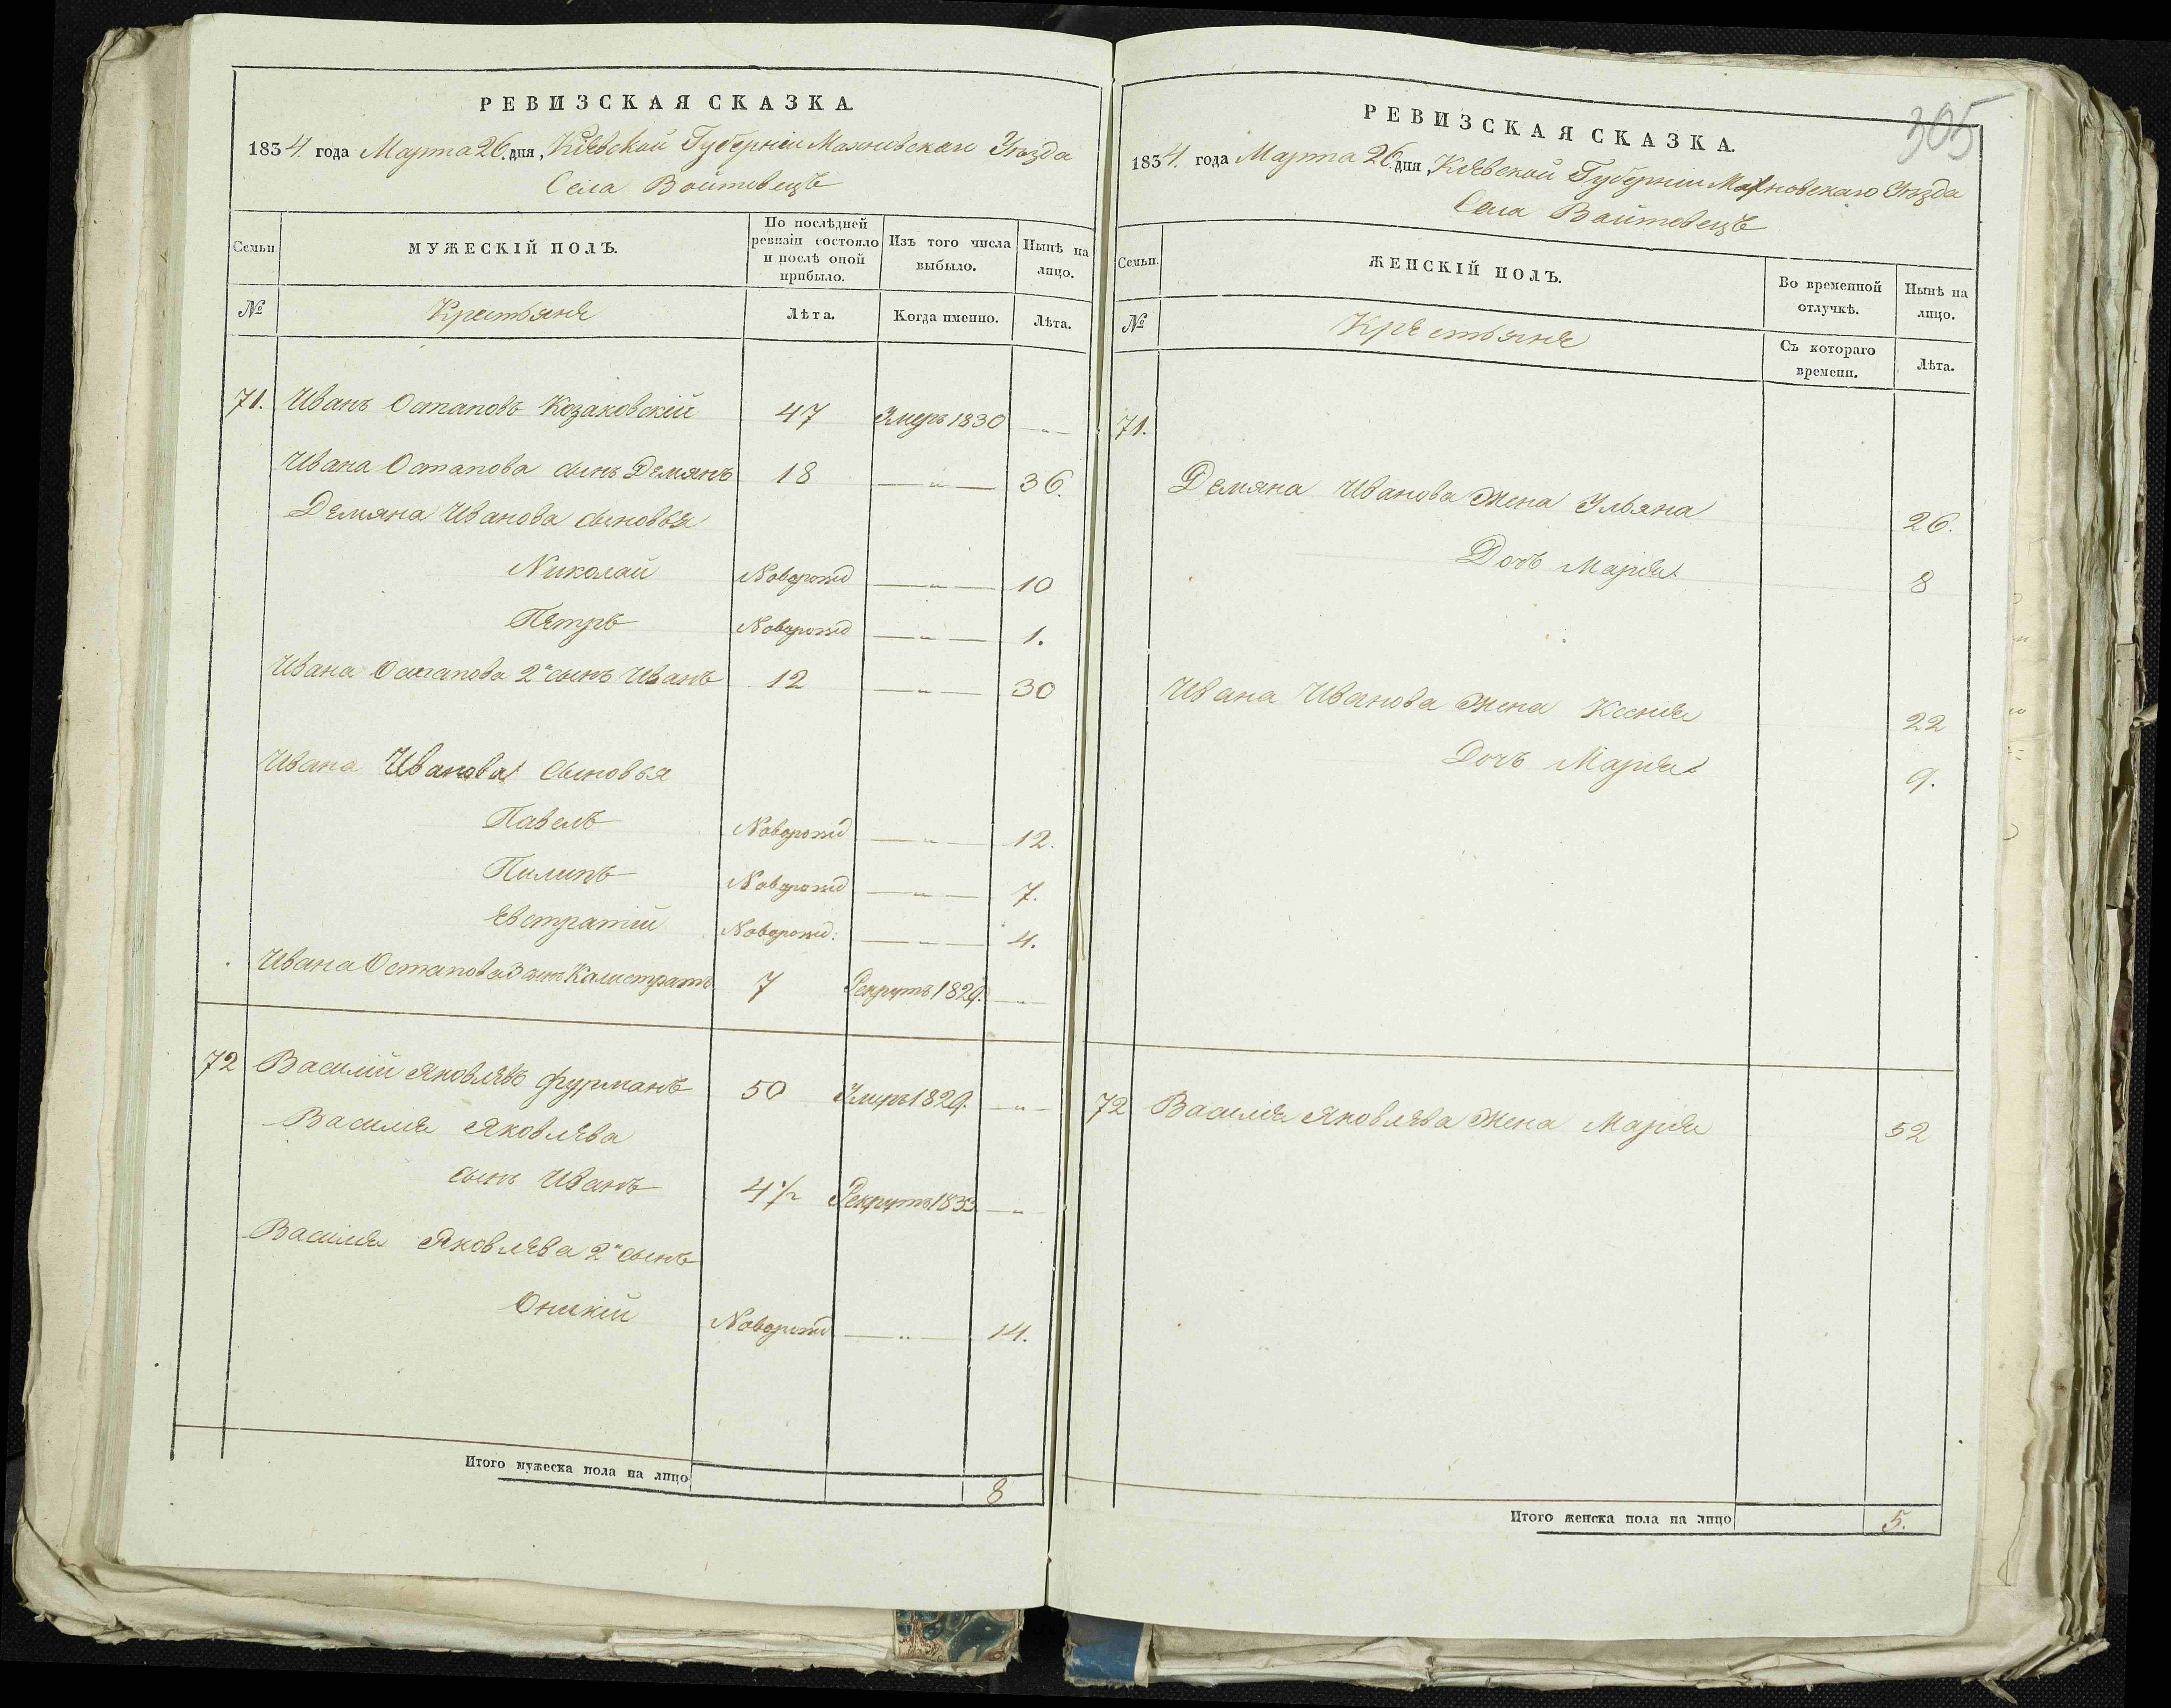 РЕВИЗСКАЯ СКАЗКА.
1834 года Марта 26 дня, Кіевской Губерніи Махновскаго Уѣзда
Села Войтовецъ
Семьи
МУЖЕСКІЙ ПОЛЪ.
По послѣдней ревизіи состояло и послѣ оной прибыло.
Изъ того числа выбыло.
Нынѣ на лицо.
№ Крестьяне Лѣта. Когда именно. Лѣта.
71. Иванъ Остаповъ Козаковскій 47 Умеръ 1830 —„—
Ивана Остапова сынъ Демянъ 18 —„— 36.
Демяна Иванова сыновья
Николай Новорожд —„— 10
Петръ Новорожд —„— 1.
Ивана Остапова 2й сынъ Иванъ 12 —„— 30
Ивана Иванова сыновья
Павелъ Новорожд —„— 12.
Пилипъ Новорожд —„— 7.
Евстратій Новорожд: —„— 4.
Ивана Остапова 3 сынъ Калистратъ 7 Рекрутъ 1829. —„—
72 Василій Яковлевъ Фурманъ 50 Умеръ 1829. —„—
Василія Яковлева
сынъ Иванъ 4½ Рекрутъ 1833 —„—
Василія Яковлева 2й сынъ
Оникій Новорожд —„— 14.
Итого мужеска пола на лицо 8
305
РЕВИЗСКАЯ СКАЗКА.
1834 года Марта 26 дня, Кіевской Губерніи Махновскаго Уѣзда
Села Войтовецъ
Семьи.
ЖЕНСКІЙ ПОЛЪ.
Во временной отлучкѣ.
Нынѣ на лицо.
№ Крестьяне Съ котораго времени. Лѣта.
71.
Демяна Иванова Жена Ульяна 26.
Дочь Марія 8
Ивана Иванова Жена Ксенія 22
Дочь Марія 9.
72 Василія Яковлева Жена Марія 52
Итого женска пола на лицо 5.